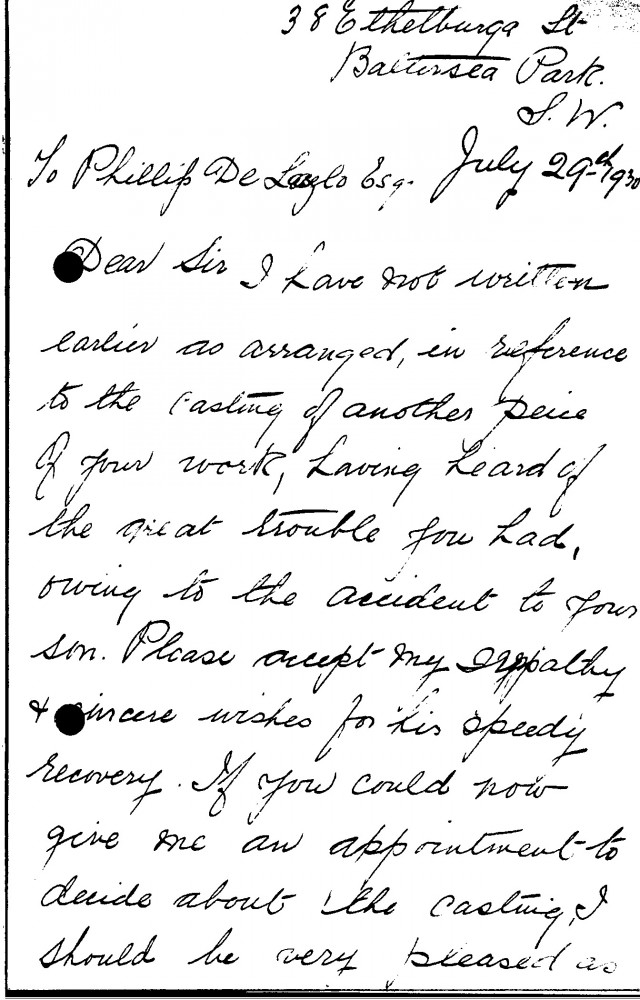 38 Ethelburga St
Battersea Park.
S. W.
July 29th 1930
To Phillip De Lazlo Esq.
Dear Sir I have not written
earlier as arranged, in reference
to the casting of another peice
of your work, having heard of
the great trouble you had,
owing to the accident to your
son. Please accept my sympathy
& sincere wishes for his speedy
recovery. If you could now
give me an appointment to
decide about the casting, I
should be very pleased as